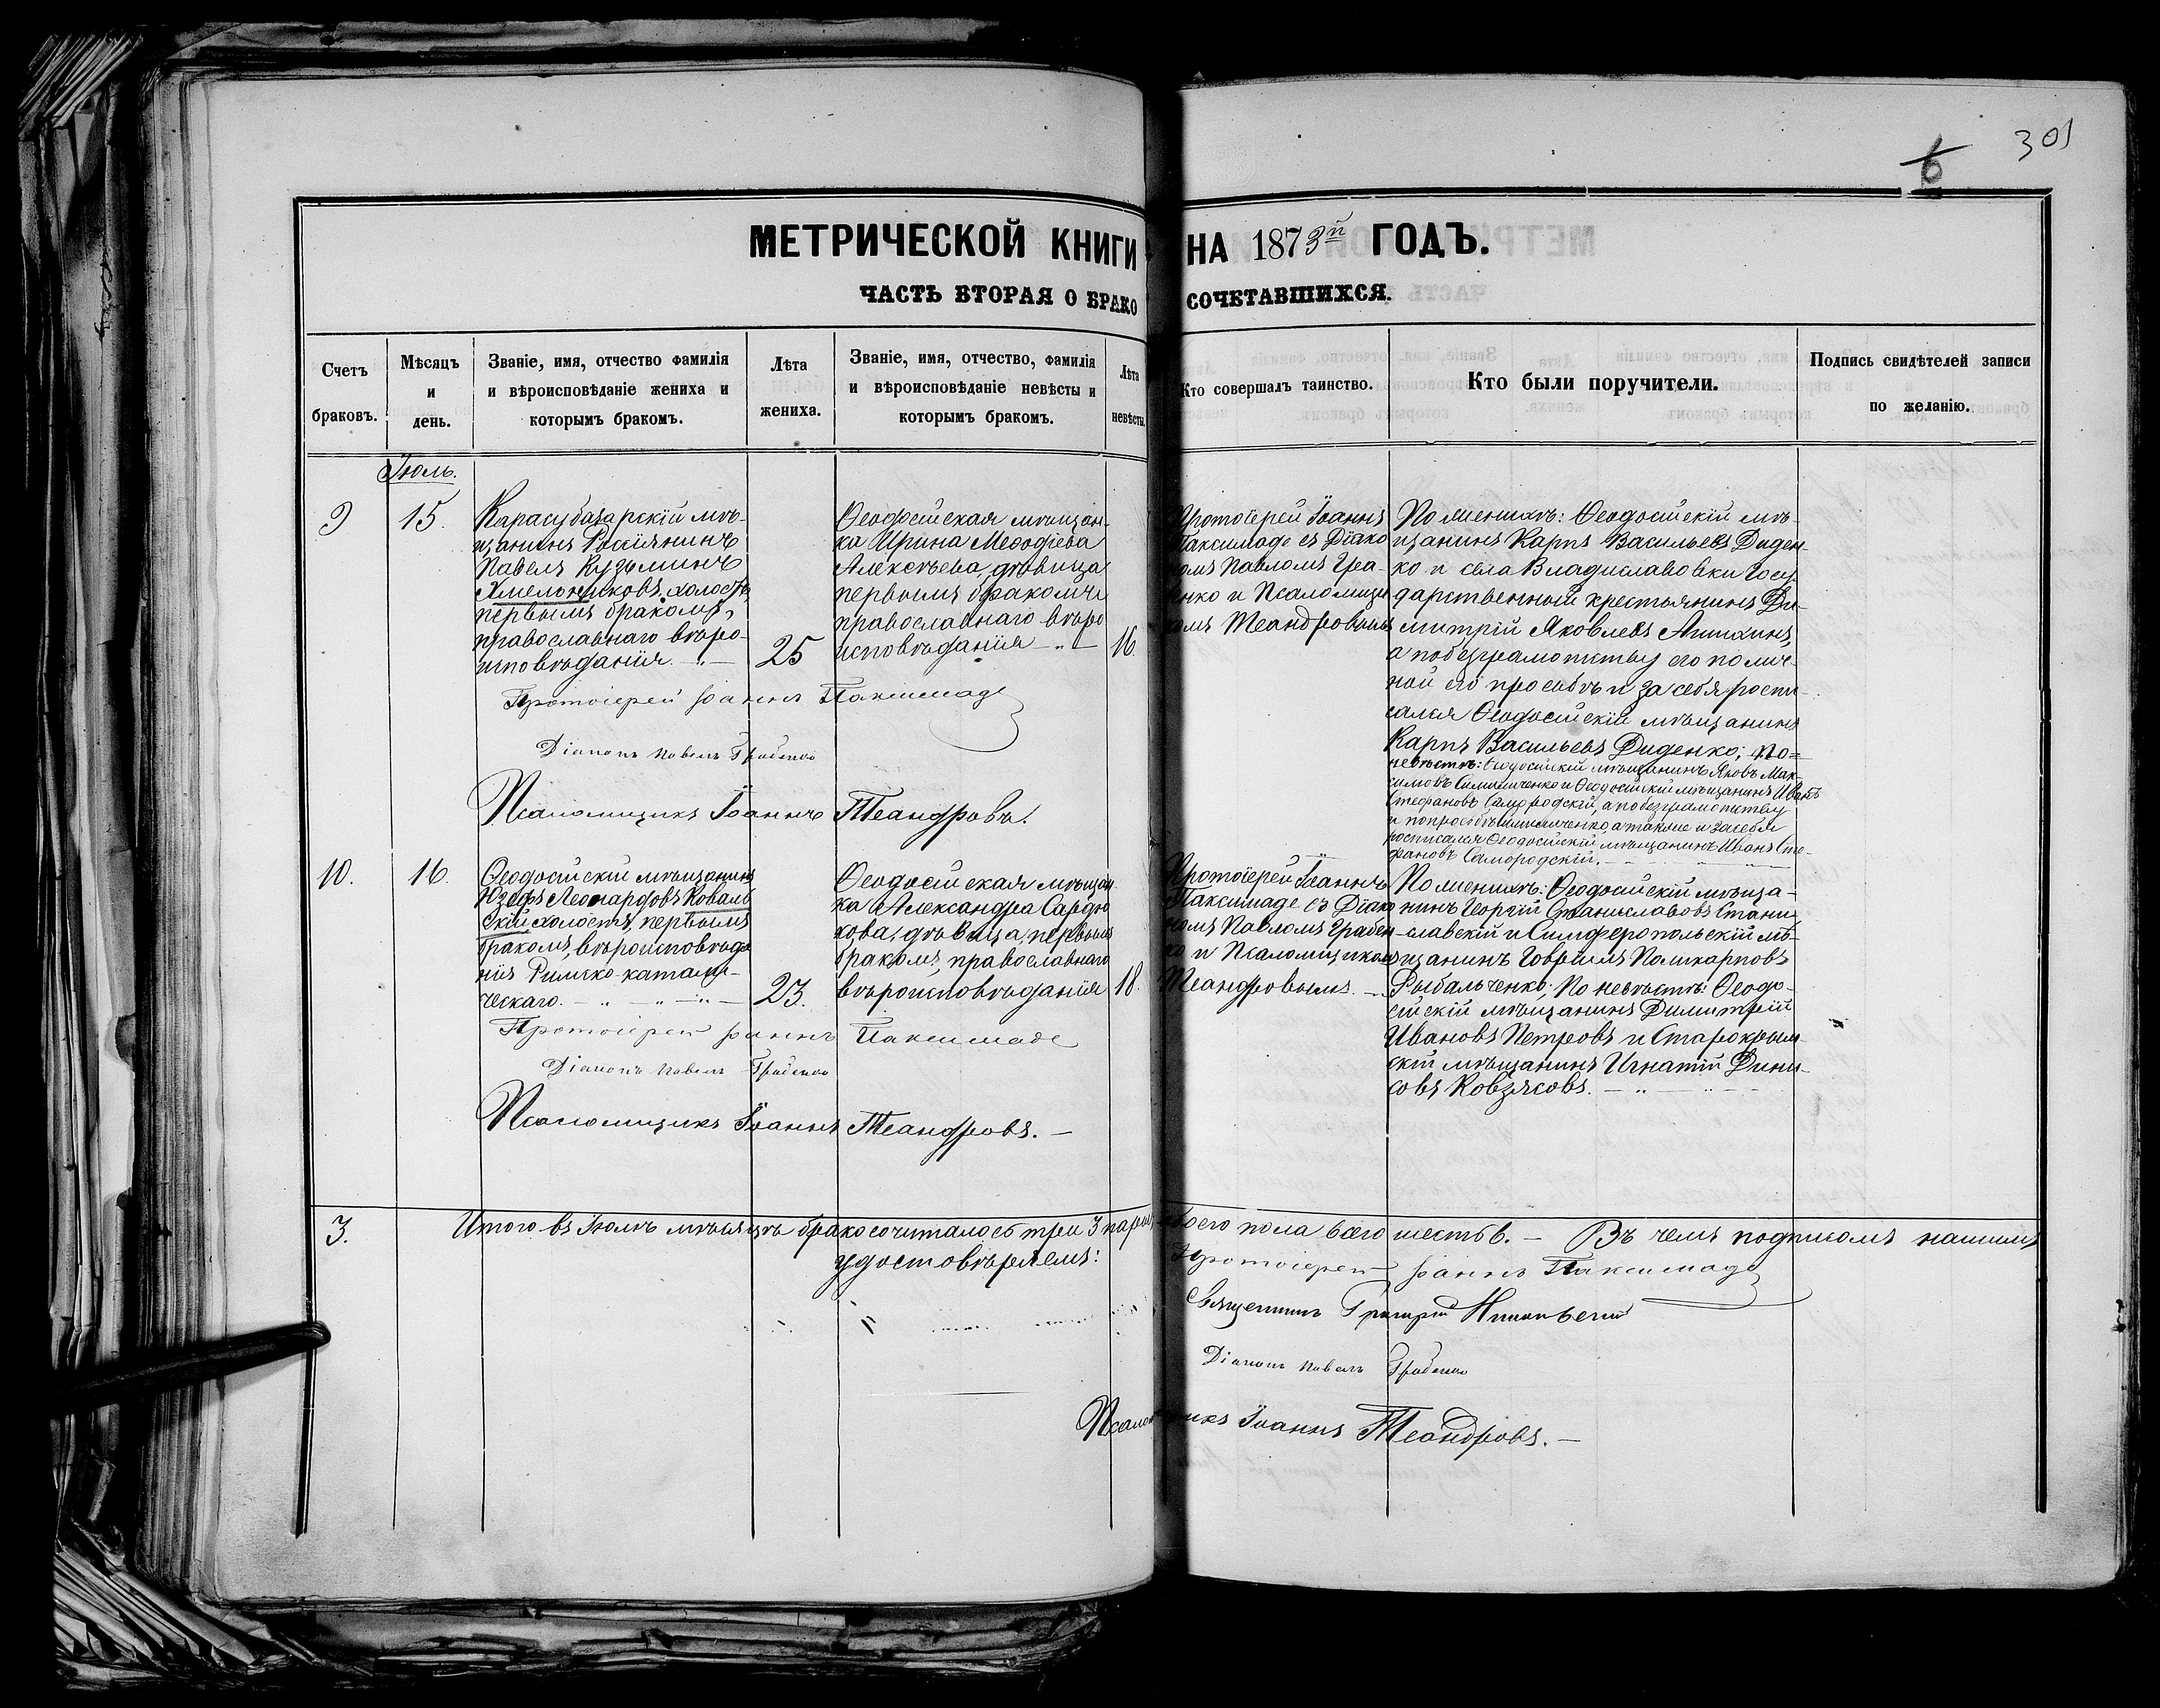 301
6
МЕТРИЧЕСКОЙ КНИГИ НА 1873й ГОДЪ.
ЧАСТЬ ВТОРАЯ О БРАКОСОЧЕТАВШИХСЯ.
Счетъ браковъ.
Мѣсяцъ и день.
Званіе, имя, отчество фамилія
и вѣроисповѣданіе жениха и
которымъ бракомъ.
Лѣта жениха.
Званіе, имя, отчество, фамилія
и вѣроисповѣданіе невѣсты и
которымъ бракомъ.
Лѣта невѣсты.
Кто совершалъ таинство.
Кто были поручители.
Подпись свидѣтелей записи
по желанію.
Іюль.
9
15.
Карасубазарскій мѣ-
щанинъ Россіянинъ
Павелъ Кузьминъ
Хмельниковъ, холостъ,
первымъ бракомъ,
православнаго вѣро-
исповѣданія
25
Ѳеодосійская мѣщан-
ка Ирина Меѳодіева
Алексѣева, дѣвица
первымъ бракомъ
православнаго вѣро
исповѣданія
16
Протоіерей Іоаннъ
Паксимаде съ Діако
номъ Павломъ Граб-
енко и Псаломщи
комъ Теандровымъ
По женихѣ: Ѳеодосійскій мѣ-
щанинъ Карпъ Васильевъ Диден-
ко и села Владиславовки Госу-
дарственный крестьянинъ Ди-
митрій Яковлевъ Анихинъ,
а по безграмотству его по лич-
ной его просьбѣ и за себя роспи-
сался Ѳеодосійскій мѣщанинъ
Карпъ Васильевъ Диденко; По=
невѣстѣ: Ѳеодосійскій мѣщанинъ Яковъ Мак-
симовъ и Ѳеодосійскій мѣщанинъ Иванъ
Стефановъ Самородскій, а по безграмотству
и по просьбѣ а также и за себя
росписался Ѳеодосійскій мѣщанинъ Иванъ Сте-
фановъ Самородскій.
Протоіерей Іоаннъ Паксимаде
Діаконъ Павелъ Грабенко
Псаломщикъ Іоаннъ Теандровъ.
10.
16.
Ѳеодосійскій мѣщанинъ
Юзефъ Леонардовъ Коваль
скій холостъ, первымъ
бракомъ, вѣроисповѣда
нія Римско-католи-
ческаго.
23.
Ѳеодосійская мѣщан-
ка Александра Сардю
кова, дѣвица, первымъ
бракомъ, православнаго
вѣроисповѣданія
18.
Протоіерей Іоаннъ
Паксимаде съ Діако
номъ Павломъ Грабен-
ко и Псаломщикомъ
Теандровымъ.
По женихѣ: Ѳеодосійскій мѣща-
нинъ Георгій Станиславовъ Стани
славскій и Симферопольскій мѣ-
щанинъ Гавріилъ Поликарповъ
Рыбальченко; По невѣстѣ: Ѳеодо-
сійскій мѣщанинъ Димитрій
Ивановъ Петровъ и Старокрым-
скій мѣщанинъ Игнатій Дини-
совъ Ковзясовъ.
Протоіерей Іоаннъ Паксимаде
Діаконъ Павелъ Грабенко
Псаломщикъ Іоаннъ Теандровъ.
3.
Итого въ Іюлѣ мѣсяцѣ бракосочиталось три 3 пары, обоего пола всего шесть 6. Въ чемъ подписомъ нашимъ
удостовѣряемъ:
Протоіерей Іоаннъ Паксимаде
Священникъ Григорій
Діаконъ Павелъ Грабенко
Псаломщикъ Іоаннъ Теандровъ.